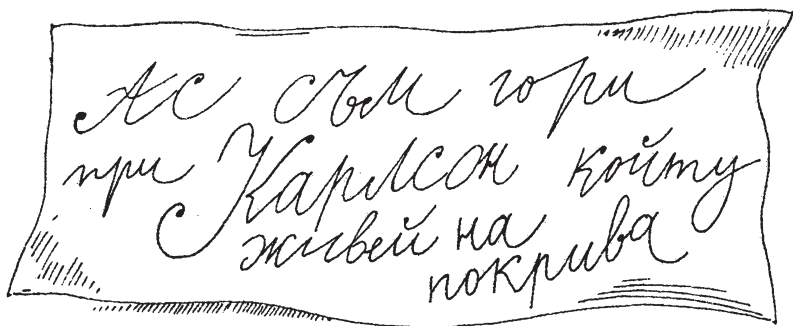 Ас съм гори
при Карлсон който
живей на
покрива